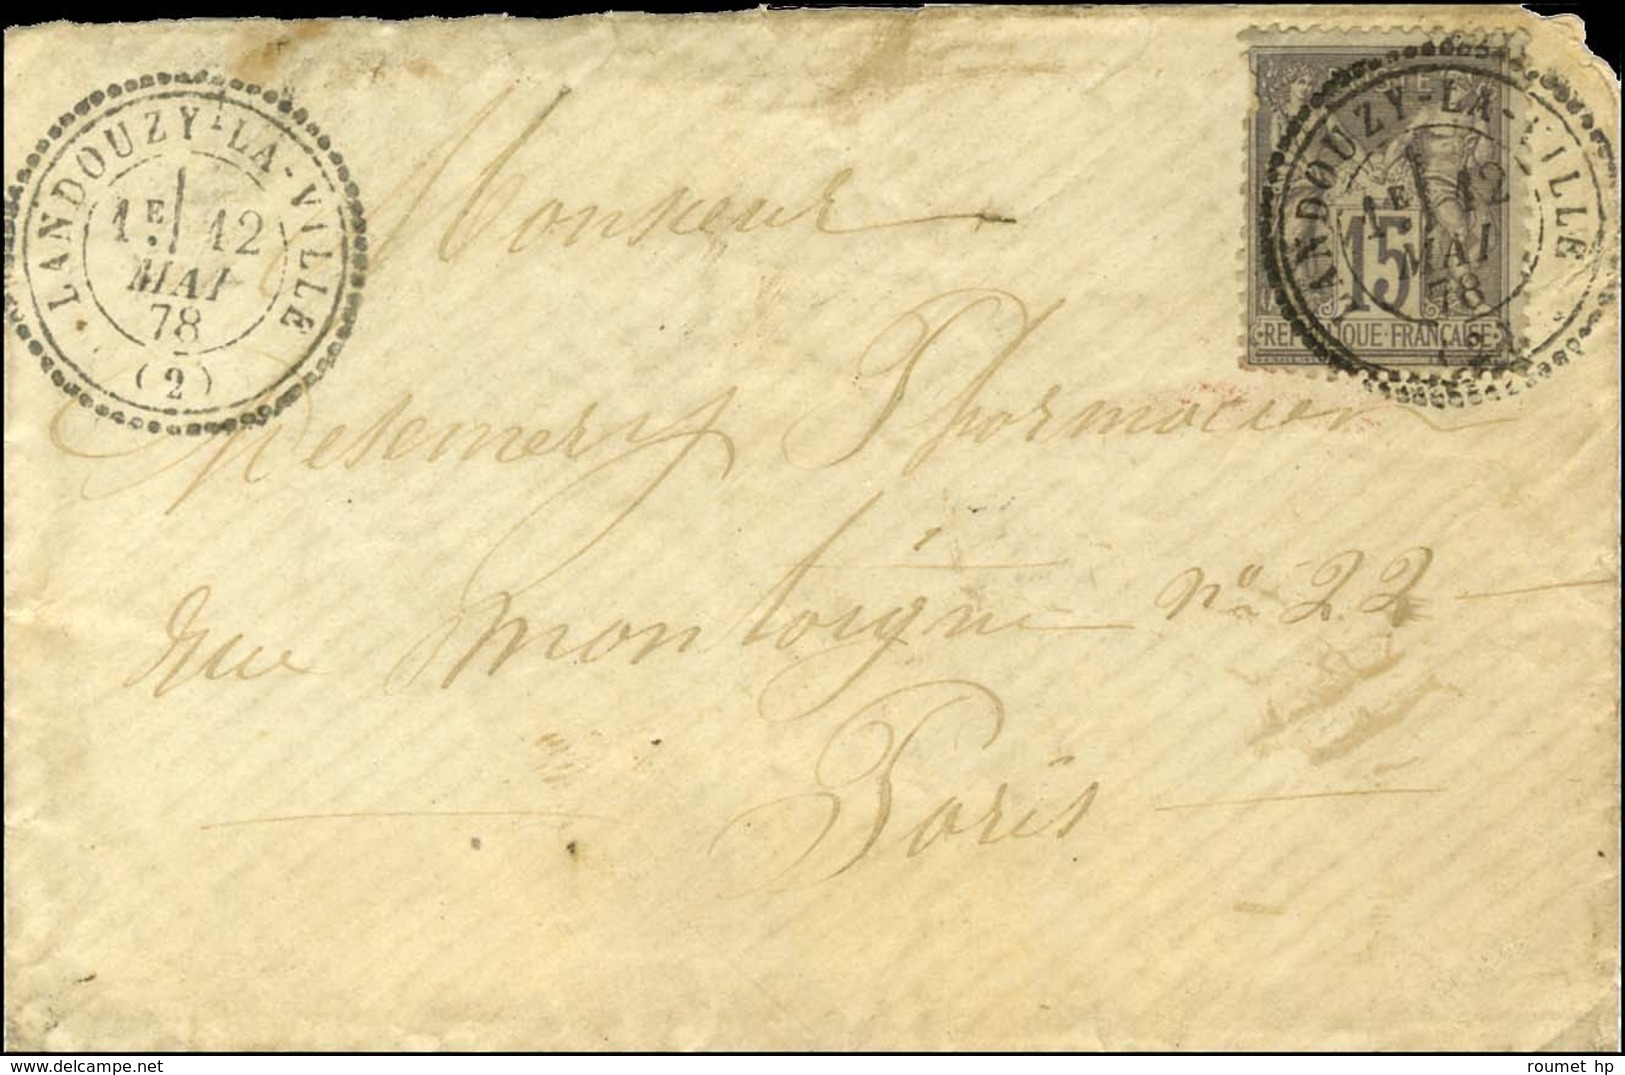 LANDOUZY-LA-VILLE
1E 12
MAI
78
(2)
LANDOUZY-LA-VILLE
1E 12
MAI
78
(2)
15
REPUBLIQUE FRANCAISE
Monsieur
Pharmacien
rue Montaigne no 22
Paris
www.delcampe.net
roumet hp